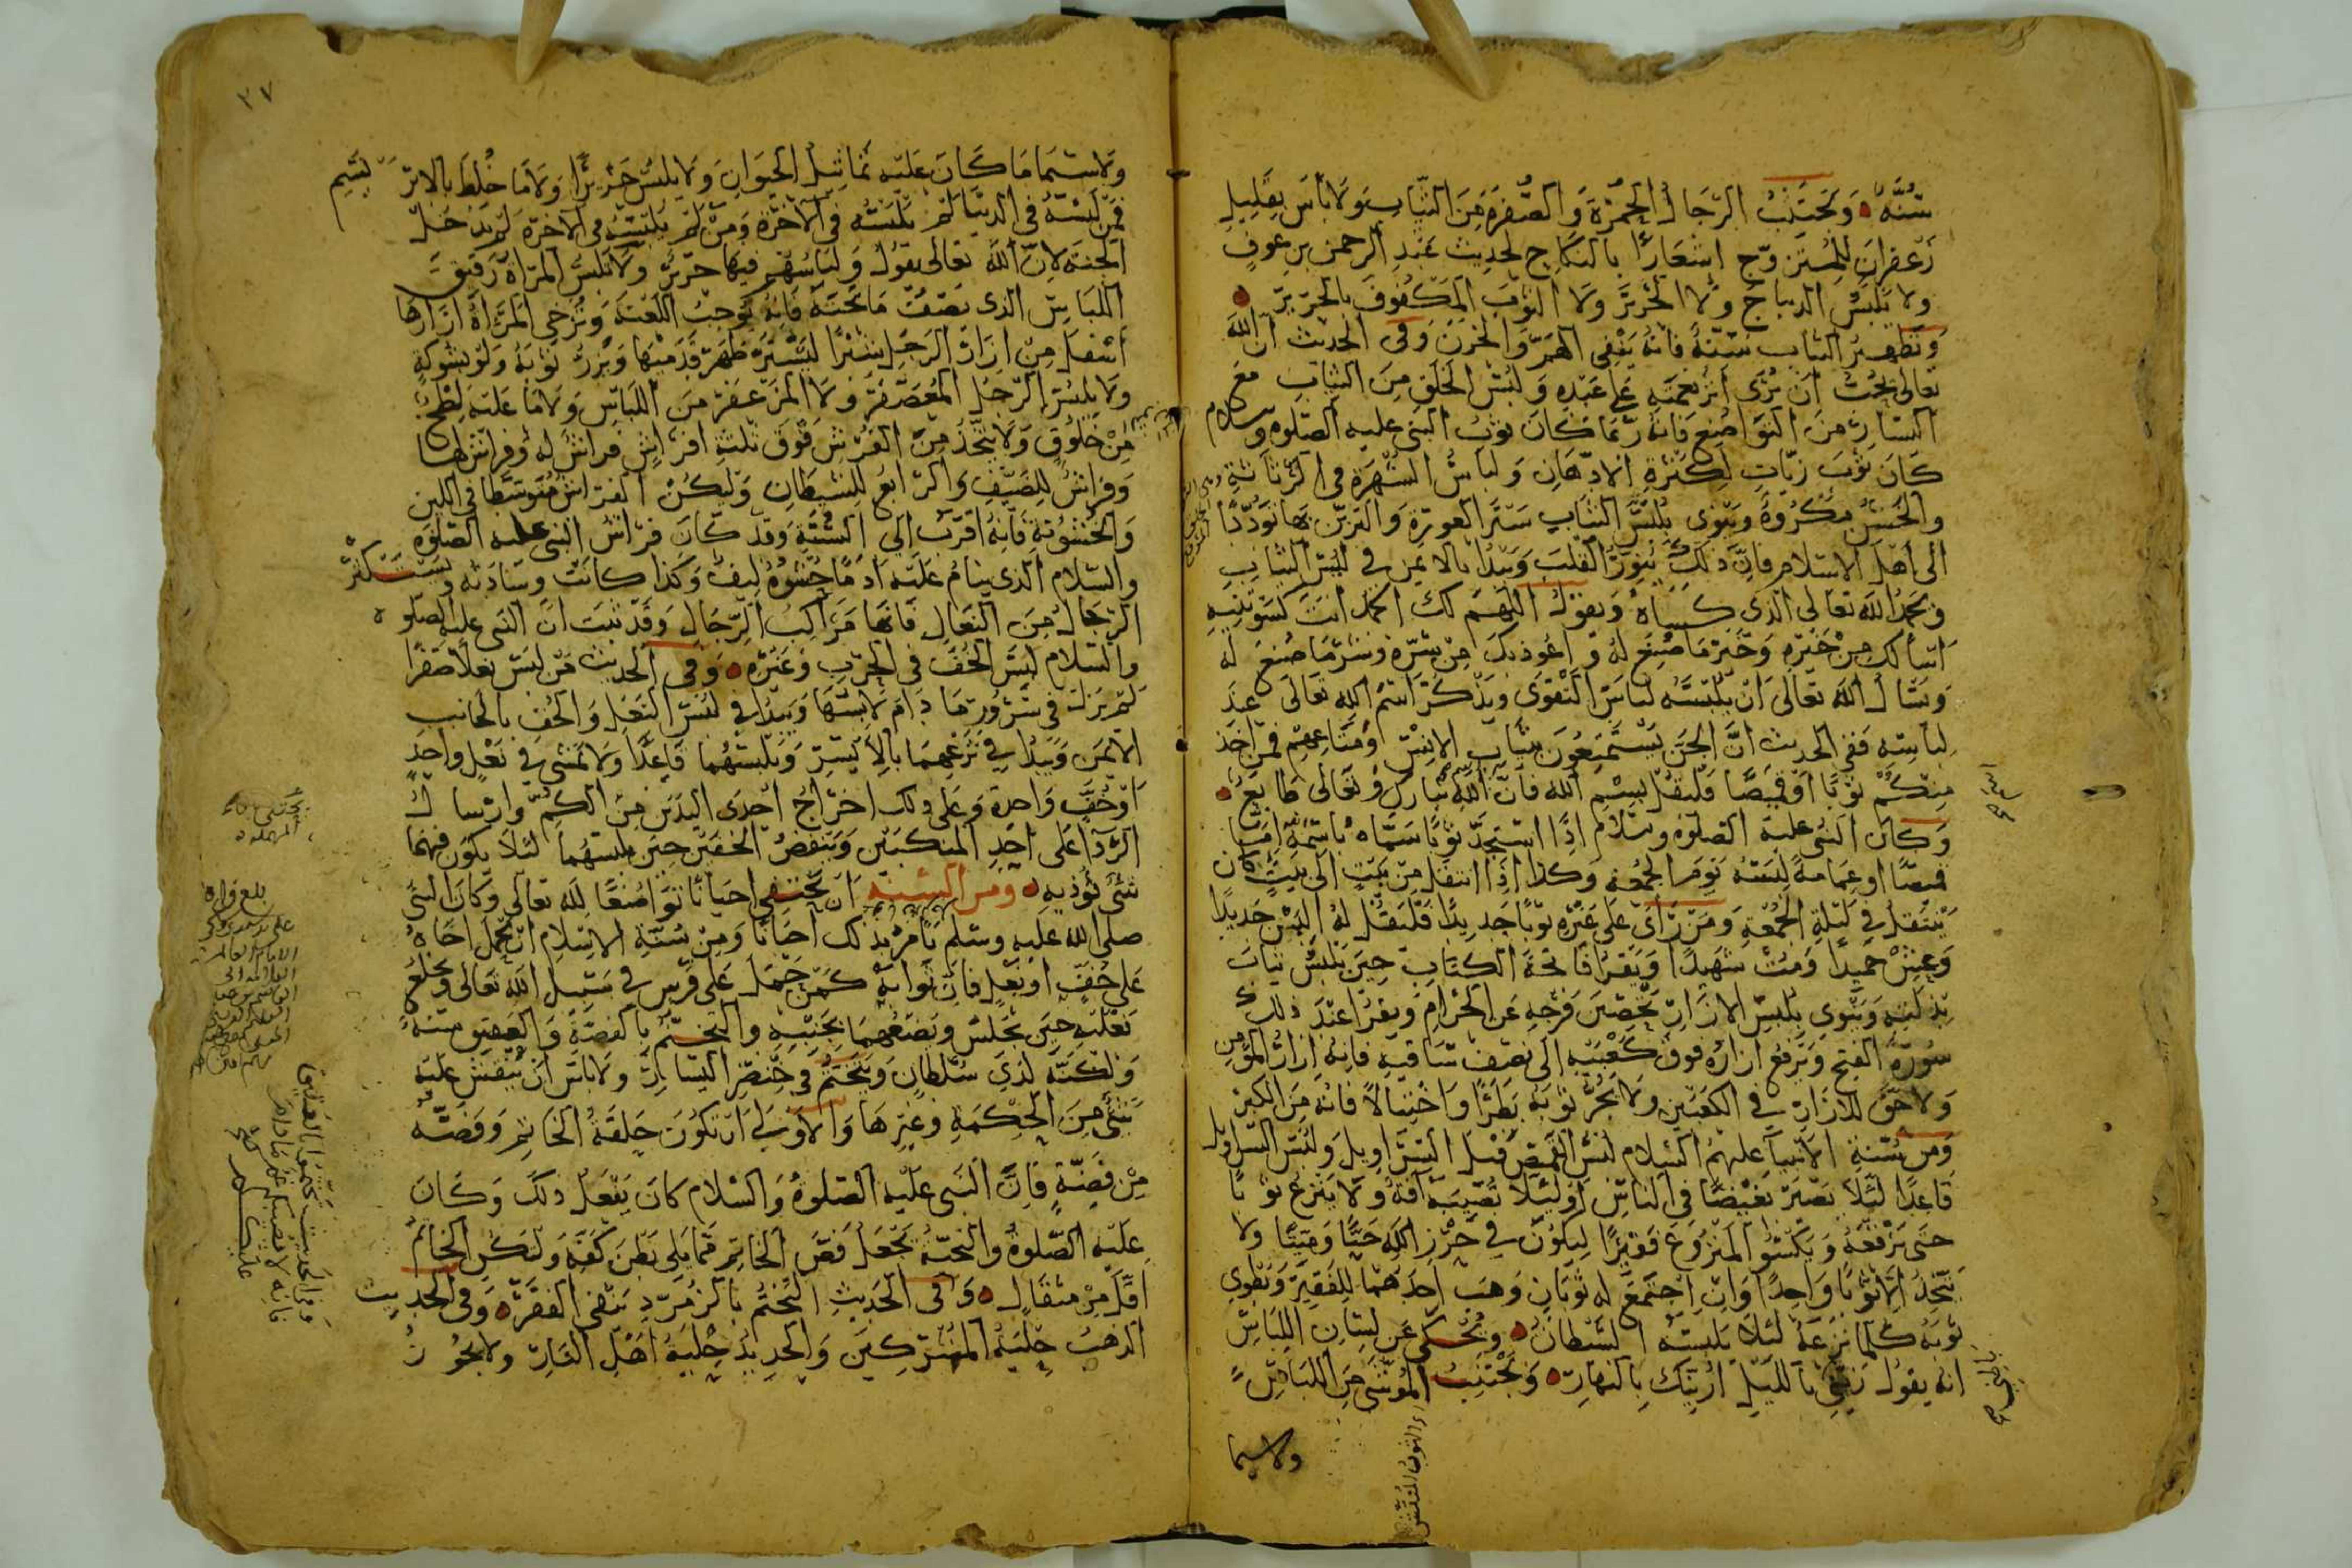 سُنَّةٌ ه وَيَجْتَنِبُ الرِّجَالُ الحُمْرَةَ وَالصُّفْرَةَ مِنَ الثِّيَابِ وَلَا بَأْسَ بِقَلِيلِ
زَعْفَرَانٍ لِلْمُتَزَوِّجِ اشعارًا بِالنِّكَاحِ لِحَدِيثِ عَبْدِ الرَّحْمَنِ بْنِ عَوْفٍ
وَلَا يَلْبَسُ الدِّيبَاجَ وَلَا الحَرِيرَ وَلَا الثَّوْبَ المَكْفُوفَ بِالحَرِيرِ ه
وَتَطْهِيرُ الثِّيَابِ سُنَّةٌ فَإِنَّهُ يَنْفِي الهَمَّ وَالحَزَنَ وَفِي الحَدِيثِ أَنَّ اللّٰهَ
تَعَالَى يُحِبُّ أَنْ يُرَى أَثَرُ نِعْمَتِهِ عَلَى عَبْدِهِ وَلُبْسُ الخَلَقِ مِنَ الثِّيَابِ مَعَ
اليَسَارِ مِنَ التَّوَاضُعِ فَإِنَّهُ رُبَّمَا كَانَ ثَوْبُ النَّبِيِّ عَلَيْهِ الصَّلٰوةُ وسلام
كَانَ ثَوْبَ زَيَّاتٍ لِكَثْرَةِ الادِّهَانِ وَلِبَاسُ الشُّهْرَةِ فِي الرَّثَاثَةِ
وَالحُسْنِ مَكْرُوهٌ وَيَنْوِي بِلُبْسِ الثِّيَابِ سَتْرَ العَوْرَةِ وَالتَّزَيُّنَ بِهَا تَوَدُّدًا
إِلَى أَهْلِ الإِسْلَامِ فَإِنَّ ذَلِكَ يُنَوِّرُ القَلْبَ وَيَبْدَأُ بِالأَيْمَنِ فِي لُبْسِ الثِّيَابِ
وَيَحْمَدُ اللّٰهَ تَعَالَى الَّذِي كَسَاهُ وَيَقُولُ اللّٰهُمَّ لَكَ الحَمْدُ أَنْتَ كَسَوْتَنِيهِ
أَسْأَلُكَ مِنْ خَيْرِهِ وَخَيْرِ مَا صُنِعَ لَهُ وَأَعُوذُ بِكَ مِنْ شَرِّهِ وَشَرِّ مَا صُنِعَ لَهُ
وَسَأَلَ اللّٰهَ تَعَالَى أَنْ يُلْبِسَهُ لِبَاسَ التَّقْوَى وَيَذْكُرُ اسْمَ اللّٰهِ تَعَالَى عِنْدَ
لِبَاسِهِ فَفِي الحَدِيثِ أَنَّ الجِنَّ يَسْتَمْتِعُونَ بِثِيَابِ الإِنْسِ وَمَتَاعِهِمْ فَمَنْ أَخَذَ
مِنْكُمْ ثَوْبًا أَوْ قَمِيصًا فَلْيَقُلْ بِسْمِ اللّٰهِ فَإِنَّ اسم اللّٰهِ تَبَارَكَ وَتَعَالَى طَابِعٌ ه
وَكَانَ النَّبِيُّ عَلَيْهِ الصَّلٰوةُ وَسَلَام إِذَا اسْتَجَدَّ ثَوْبًا سَمَّاهُ بِاسْمِهِ إِمَّا
قَمِيصًا أَوْ عِمَامَةً لَبِسَهُ يَوْمَ الجُمُعَةِ وَكَذَا إِذَا انْتَقَلَ مِنْ بَيْتٍ إِلَى بَيْتٍ كَانَ
يَنْتَقِلُ فِي لَيْلَةِ الجُمُعَةِ وَمَنْ رَأَى عَلَى غَيْرِهِ ثَوْبًا جَدِيدًا فَلْيَقُلْ لَهُ الْبَسْ جَدِيدًا
وَعِشْ حَمِيدًا وَمُتْ شَهِيدًا وَيَقْرَأُ فَاتِحَةَ الكِتَابِ حِينَ يَلْبَسُ ثِيَابَ
بِذْلَتِهِ وَيَنْوِي بِلُبْسِ الإِزَارِ تَحْصِينَ فَرْجِهِ عَنِ الحَرَامِ وَيَقْرَأُ عِنْدَ ذَلِكَ
سُورَةَ الفَتْحِ وَيَرْفَعُ إِزَارَهُ فَوْقَ كَعْبَيْهِ إِلَى نِصْفِ سَاقَيْهِ فَإِنَّهُ إِزَارُ المُؤْمِنِ
وَلَا حَقَّ لِلْإِزَارِ فِي الكَعْبَيْنِ وَلَا يَجُرُّ ثَوْبَهُ بَطَرًا وَاخْتِيَالًا فَإِنَّهُ مِنَ الكِبْرِ
وَمِنْ سُنَّةِ الأَنْبِيَاءِ عَلَيْهِمُ السَّلَام لُبْسُ القَمِيصِ قَبْلَ السَّرَاوِيلِ وَلُبْسُ السَّرَاوِيلِ
قَاعِدًا لِئَلَّا يَصِيرَ بَغِيضًا فِي النَّاسِ أَوْ لِئَلَّا تُصِيبَهُ آفَةٌ وَلَا يَنْزِعُ ثَوْبًا
حَتَّى يَرْقَعَهُ وَيَكْسُوَ المَنْزُوعَ فَقِيرًا لِيَكُونَ فِي حِرْزِ اللّٰهِ حَيًّا وَمَيِّتًا وَلَا
يَتَّخِذُ إِلَّا ثَوْبًا وَاحِدًا وَإِنِ اجْتَمَعَ لَهُ ثَوْبَانِ وَهَبَ أَحَدَهُمَا لِلْفَقِيرِ وَيَطْوِي
ثَوْبَهُ كُلَّمَا نَزَعَهُ لِئَلَّا يَلْبَسَهُ الشَّيْطَانُ ه وَيُحْكَى عَنْ لِسَانِ اللِّبَاسِ
أَنَّهُ يَقُولُ زَيِّنِّي بِاللَّيْلِ أُزَيِّنْكَ بِالنَّهَارِ ه وَيَجْتَنِبُ المُوَشَّى مِنَ اللِّبَاسِ
ولاسيما
اى الثوب المنقش
٣٧
وَلَاسِيَّمَا مَا كَانَ عَلَيْهِ تَمَاثِيلُ الحَيَوَانِ وَلَا يَلْبَسُ حَرِيرًا وَلَا مَا خُلِطَ بِالابْرَيسَمِ
فَمَنْ لَبِسَهُ فِي الدُّنْيَا لَمْ يَلْبَسْهُ فِي الآخِرَةِ وَمَنْ لَمْ يَلْبَسْهُ فِي الآخِرَةِ لَمْ يَدْخُلْ
الجَنَّةَ لِأَنَّ اللّٰهَ تَعَالَى يَقُولُ وَلِبَاسُهُمْ فِيهَا حَرِيرٌ وَلَا تَلْبَسُ المَرْأَةُ رَقِيقَ
اللِّبَاسِ الَّذِي يَصِفُ مَا تَحْتَهُ فَإِنَّهُ يُوجِبُ اللَّعْنَةَ وَتُرْخِي المَرْأَةُ إِزَارَهَا
أَسْفَلَ مِنْ إِزَارِ الرَّجُلِ شِبْرًا لِيَسْتُرَ ظَهْرَ قَدَمَيْهَا وَيَزُرُّ ثَوْبَهُ وَلَوْ بِشَوْكَةٍ
وَلَا يَلْبَسُ الرَّجُلُ المُعَصْفَرَ وَلَا المُزَعْفَرَ مِنَ اللِّبَاسِ وَلَا مَا عَلَيْهِ لَطْخٌ
مِنْ خَلُوقٍ وَلَا يَتَّخِذُ مِنَ الفُرُشِ فَوْقَ ثَلٰثَةِ أَفْرَاشٍ فِرَاشٌ لَهُ وَفِرَاشٌ لَهَا
وَفِرَاشٌ لِلضَّيْفِ وَالرَّابِعُ لِلشَّيْطَانِ وَلْيَكُنْ الفِرَاشُ مُتَوَسِّطًا فِي اللِّينِ
وَالخُشُونَةِ فَإِنَّهُ أَقْرَبُ إِلَى السُّنَّةِ وَقَدْ كَانَ فِرَاشُ النَّبِيِّ عَلَيْهِ الصَّلٰوةُ
وَالسَّلَامُ الَّذِي يَنَامُ عَلَيْهِ أَدَمًا حَشْوُهُ لِيفٌ وَكَذَا كَانَتْ وِسَادَتُهُ وَيَسْتَكْثِرُ
الرِّجَالُ مِنَ النِّعَالِ فَإِنَّهَا مَرَاكِبُ الرِّجَالِ وَقَدْ ثَبَتَ أَنَّ النَّبِيَّ عَلَيْهِ الصَّلٰوة
وَالسَّلَامُ لَبِسَ الخُفَّ فِي الحَرْبِ وَغَيْرِهِ ه وَفِي الحَدِيثِ مَنْ لَبِسَ نَعْلًا صَفْرَا
لَمْ يَزَلْ فِي سُرُورٍ مَا دَامَ لَابِسَهَا وَيَبْدَأُ فِي لُبْسِ النَّعْلِ وَالخُفِّ بِالجَانِبِ
الأَيْمَنِ وَيَبْدَأُ فِي نَزْعِهِمَا بِالأَيْسَرِ وَيَلْبَسُهُمَا قَاعِدًا وَلَا يَمْشِي فِي نَعْلٍ وَاحِدٍ
أَوْ خُفٍّ وَاحِدَةٍ وَعَلَى ذَلِكَ إِخْرَاجُ إِحْدَى اليَدَيْنِ مِنَ الكُمِّ وَإِرْسَالُ
الرِّدَاءِ عَلَى أَحَدِ المَنْكِبَيْنِ وَيَنْفُضُ الخُفَّيْنِ حِينَ يلبسهُمَا لِئَلَّا يَكُونَ فِيهِمَا
شَيْءٌ يُؤْذِيهِ ه وَمِنَ السُّنَّةِ أَنْ يَحْتَفِيَ أَحْيَانًا تَوَاضُعًا لِلّٰهِ تَعَالَى وَكَانَ النَّبِيُّ
صَلَّى اللّٰهُ عَلَيْهِ وَسَلَّمَ يَأْمُرُ بِذَلِكَ أَحْيَانًا وَمِنْ سُنَّةِ الإِسْلَامِ أَنْ يَحْمِلَ أَخَاهُ
عَلَى خُفٍّ أَوْ نَعْلٍ فَإِنَّ ثَوَابَهُ كَمَنْ حَمَلَ عَلَى فَرَسٍ فِي سَبِيلِ اللّٰهِ تَعَالَى وَيَخْلَعُ
نَعْلَيْهِ حِينَ يَجْلِسُ وَيَضَعُهُمَا بِجَنْبِهِ وَالتَّخَتُّمُ بِالفِضَّةِ وَالعَقِيقِ سُنَّةٌ
وَلَكِنَّهُ لِذِي سُلْطَانٍ وَيَتَخَتَّمُ فِي خِنْصِرِ اليَسَارِ وَلَا بَأْسَ أَنْ يَنْقُشَ عَلَيْهِ
شَيْئٌ مِنَ الحِكْمَةِ وَغَيْرِهَا وَالأَوْلَى أَنْ تَكُونَ حَلْقَةُ الخَاتَمِ وَفَصُّهُ
مِنْ فِضَّةٍ فَإِنَّ النَّبِيَّ عَلَيْهِ الصَّلٰوةُ وَالسَّلَامُ كَانَ يَفْعَلُ ذَلِكَ وَكَانَ
عَلَيْهِ الصَّلٰوةُ وَالتَّحِيَّةُ يَجْعَلُ فَصَّ الخَاتَمِ مِمَّا يَلِي بَطْنَ كَفِّهِ وَلْيَكُنِ الخَاتَمُ
أَقَلَّ مِنْ مِثْقَالٍ ه وَفِي الحَدِيثِ التَّخَتُّمُ بِالزُّمُرُّدِ يَنْفِي الفَقْرَ ه وَفِي الحَدِيثِ
الذَّهَبُ حِلْيَةُ المُشْرِكِينَ وَالحَدِيدُ حِلْيَةُ أَهْلِ النَّارِ وَلَا يَجُوزُ
وفى الحديث تختموا بالعقيق
فانه لا يصيبكم غم مادام
عليكم